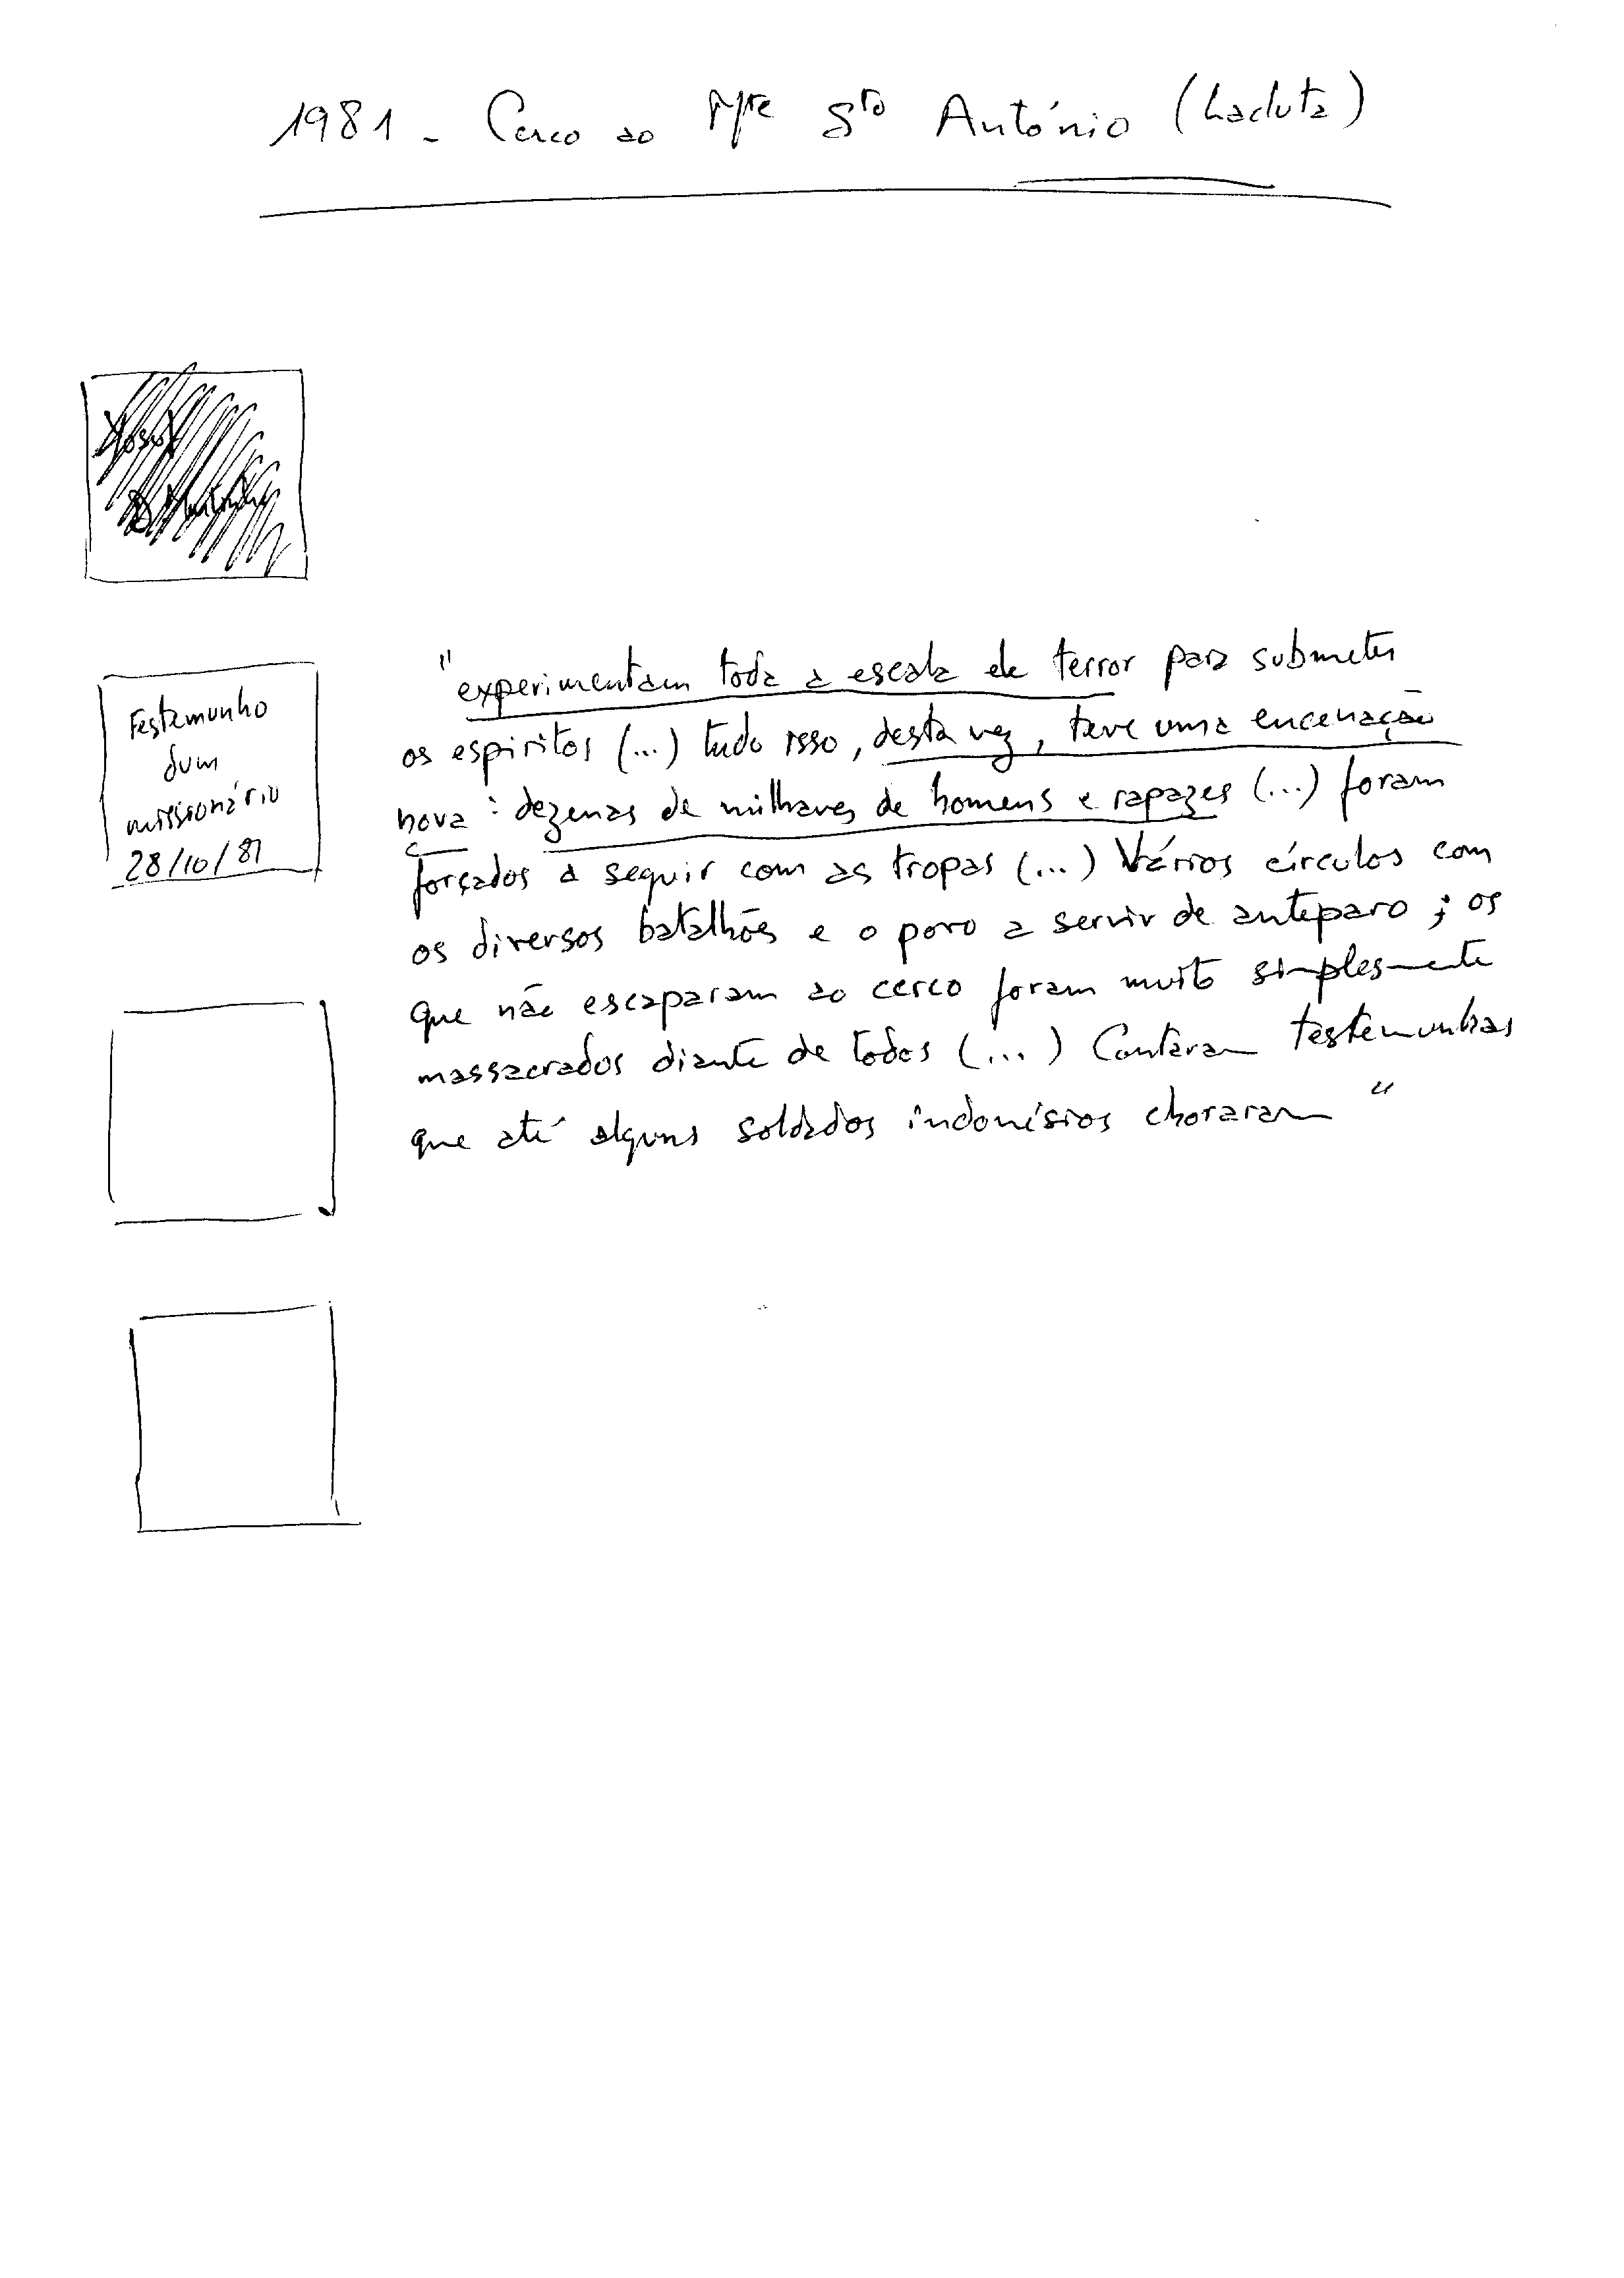 1981 - Cerco ao Mte Sto António (Lacluta)
Testemunho
dum
missionário
28/10/81
"experimentam toda a escala de terror para submeter
os espiritos (...) tudo isso, desta vez, teve uma encenação
nova : dezenas de milhares de homens e rapazes (...) foram
forçados a seguir com as tropas (...) Vários círculos com
os diversos batalhões e o povo a servir de anteparo ; os
que não escaparam ao cerco foram muito simplesmente
massacrados diante de todos (...) Contaram testemunhas
que até alguns soldados indonésios choraram "